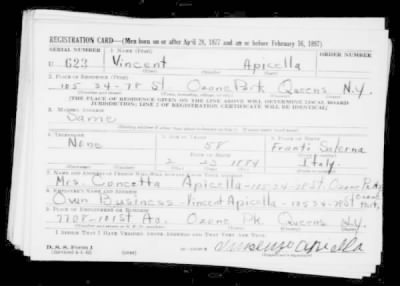 REGISTRATION CARD—(Men born on or after April 28, 1877 and on or before February 16, 1897)
SERIAL NUMBER 1. NAME (Print) ORDER NUMBER
U 623 Vincent Apicella
2. PLACE OF RESIDENCE (Print)
105 34-78 St. Ozone Park Queens N.Y.
[THE PLACE OF RESIDENCE GIVEN ON THE LINE ABOVE WILL DETERMINE LOCAL BOARD
JURISDICTION; LINE 2 OF REGISTRATION CERTIFICATE WILL BE IDENTICAL]
3. MAILING ADDRESS
Same
4. TELEPHONE 5. AGE IN YEARS 6. PLACE OF BIRTH
None 58
DATE OF BIRTH
2 23 1884 Italy
7. NAME AND ADDRESS OF PERSON WHO WILL ALWAYS KNOW YOUR ADDRESS
Mrs. Concetta Apicella-105 34-78 St. Ozone Park
8. EMPLOYER'S NAME AND ADDRESS
Own Business-Vincent Apicella-105 34-78 St Ozone Park
9. PLACE OF EMPLOYMENT OR BUSINESS
7708-101st Av. Ozone Pk. Queens N.Y.
I AFFIRM THAT I HAVE VERIFIED ABOVE ANSWERS AND THAT THEY ARE TRUE.
D. S. S. Form 1
Vincenzo Apicella